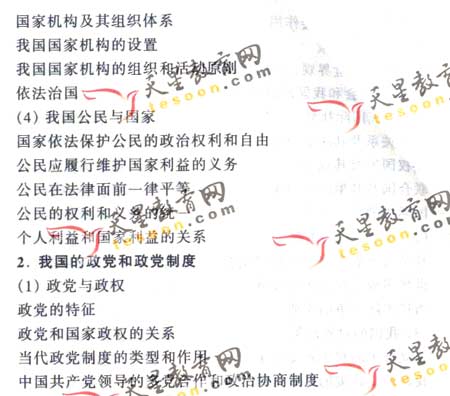 国家机构及其组织体系
我国国家机构的设置
我国国家机构的组织和活动原则
依法治国
(4) 我国公民与国家
国家依法保护公民的政治权利和自由
公民应履行维护国家利益的义务
公民在法律面前一律平等
公民的权利和义务的统一
个人利益和国家利益的关系
2. 我国的政党和政党制度
(1) 政党与政权
政党的特征
政党和国家政权的关系
当代政党制度的类型和作用
中国共产党领导的多党合作和政治协商制度
天星教育网
tesoon.com
天星教育网
tesoon.com
天星教育网
tesoon.com
天星教育网
tesoon.com
天星教育网
tesoon.com
天星教育网
tesoon.com